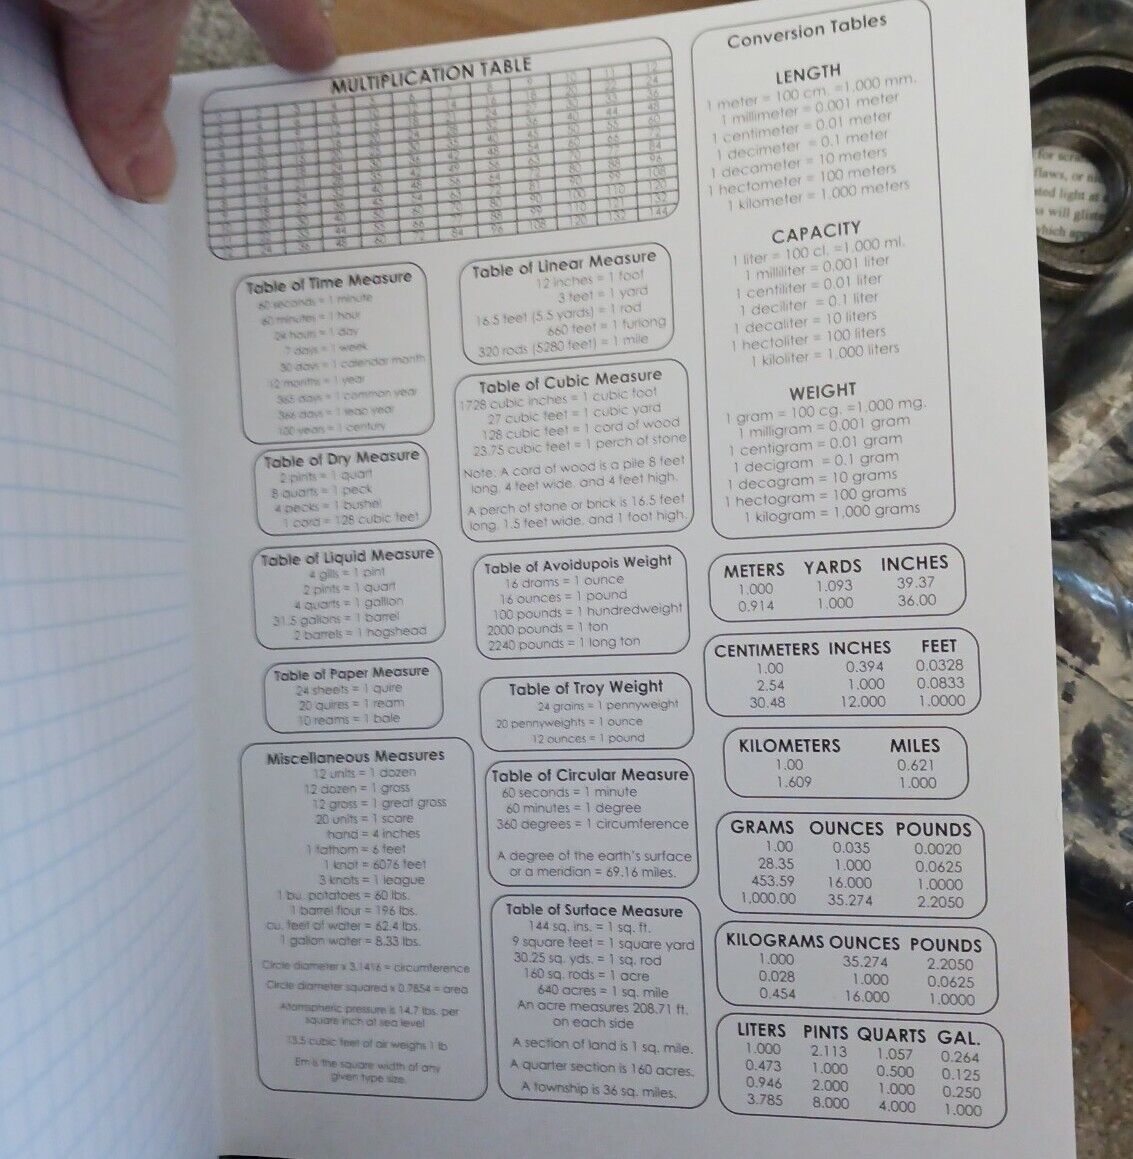 MULTIPLICATION TABLE
Table of Time Measure
60 seconds = 1 minute
60 minutes = 1 hour
24 hours = 1 day
7 days = 1 week
30 days = 1 calendar month
12 months = 1 year
365 days = 1 common year
366 days = 1 leap year
100 years = 1 century
Table of Dry Measure
2 pints = 1 quart
8 quarts = 1 peck
4 pecks = 1 bushel
1 cord = 128 cubic feet
Table of Liquid Measure
4 gills = 1 pint
2 pints = 1 quart
4 quarts = 1 gallon
31.5 gallons = 1 barrel
2 barrels = 1 hogshead
Table of Paper Measure
24 sheets = 1 quire
20 quires = 1 ream
10 reams = 1 bale
Miscellaneous Measures
12 units = 1 dozen
12 dozen = 1 gross
12 gross = 1 great gross
20 units = 1 score
hand = 4 inches
1 fathom = 6 feet
1 knot = 6076 feet
3 knots = 1 league
1 bu. potatoes = 60 lbs.
1 barrel flour = 196 lbs.
cu. feet of water = 62.4 lbs.
1 gallon water = 8.33 lbs.
Circle diameter x 3.1416 = circumference
Circle diameter squared x 0.7854 = area
Atomspheric pressure is 14.7 lbs. per
square inch at sea level
13.5 cubic feet of air weighs 1 lb
Em is the square width of any
given type size
Table of Linear Measure
12 inches = 1 foot
3 feet = 1 yard
16.5 feet (5.5 yards) = 1 rod
660 feet = 1 furlong
320 rods (5280 feet) = 1 mile
Table of Cubic Measure
1728 cubic inches = 1 cubic foot
27 cubic feet = 1 cubic yard
128 cubic feet = 1 cord of wood
23.75 cubic feet = 1 perch of stone
Note: A cord of wood is a pile 8 feet
long, 4 feet wide, and 4 feet high.
A perch of stone or brick is 16.5 feet
long, 1.5 feet wide, and 1 foot high.
Table of Avoidupois Weight
16 drams = 1 ounce
16 ounces = 1 pound
100 pounds = 1 hundredweight
2000 pounds = 1 ton
2240 pounds = 1 long ton
Table of Troy Weight
24 grains = 1 pennyweight
20 pennyweights = 1 ounce
12 ounces = 1 pound
Table of Circular Measure
60 seconds = 1 minute
60 minutes = 1 degree
360 degrees = 1 circumference
A degree of the earth's surface
or a meridian = 69.16 miles.
Table of Surface Measure
144 sq. ins. = 1 sq. ft.
9 square feet = 1 square yard
30.25 sq. yds. = 1 sq. rod
160 sq. rods = 1 acre
640 acres = 1 sq. mile
An acre measures 208.71 ft.
on each side
A section of land is 1 sq. mile.
A quarter section is 160 acres.
A township is 36 sq. miles.
Conversion Tables
LENGTH
1 meter = 100 cm. =1,000 mm.
1 millimeter = 0.001 meter
1 centimeter = 0.01 meter
1 decimeter = 0.1 meter
1 decameter = 10 meters
1 hectometer = 100 meters
1 kilometer = 1,000 meters
CAPACITY
1 liter = 100 cl. =1,000 ml.
1 milliliter = 0.001 liter
1 centiliter = 0.01 liter
1 deciliter = 0.1 liter
1 decaliter = 10 liters
1 hectoliter = 100 liters
1 kiloliter = 1,000 liters
WEIGHT
1 gram = 100 cg. =1,000 mg.
1 milligram = 0.001 gram
1 centigram = 0.01 gram
1 decigram = 0.1 gram
1 decagram = 10 grams
1 hectogram = 100 grams
1 kilogram = 1,000 grams
METERS YARDS INCHES
1.000 1.093 39.37
0.914 1.000 36.00
CENTIMETERS INCHES FEET
1.00 0.394 0.0328
2.54 1.000 0.0833
30.48 12.000 1.0000
KILOMETERS MILES
1.00 0.621
1.609 1.000
GRAMS OUNCES POUNDS
1.00 0.035 0.0020
28.35 1.000 0.0625
453.59 16.000 1.0000
1,000.00 35.274 2.2050
KILOGRAMS OUNCES POUNDS
1.000 35.274 2.2050
0.028 1.000 0.0625
0.454 16.000 1.0000
LITERS PINTS QUARTS GAL.
1.000 2.113 1.057 0.264
0.473 1.000 0.500 0.125
0.946 2.000 1.000 0.250
3.785 8.000 4.000 1.000
for
flaws, or
light at
will
which